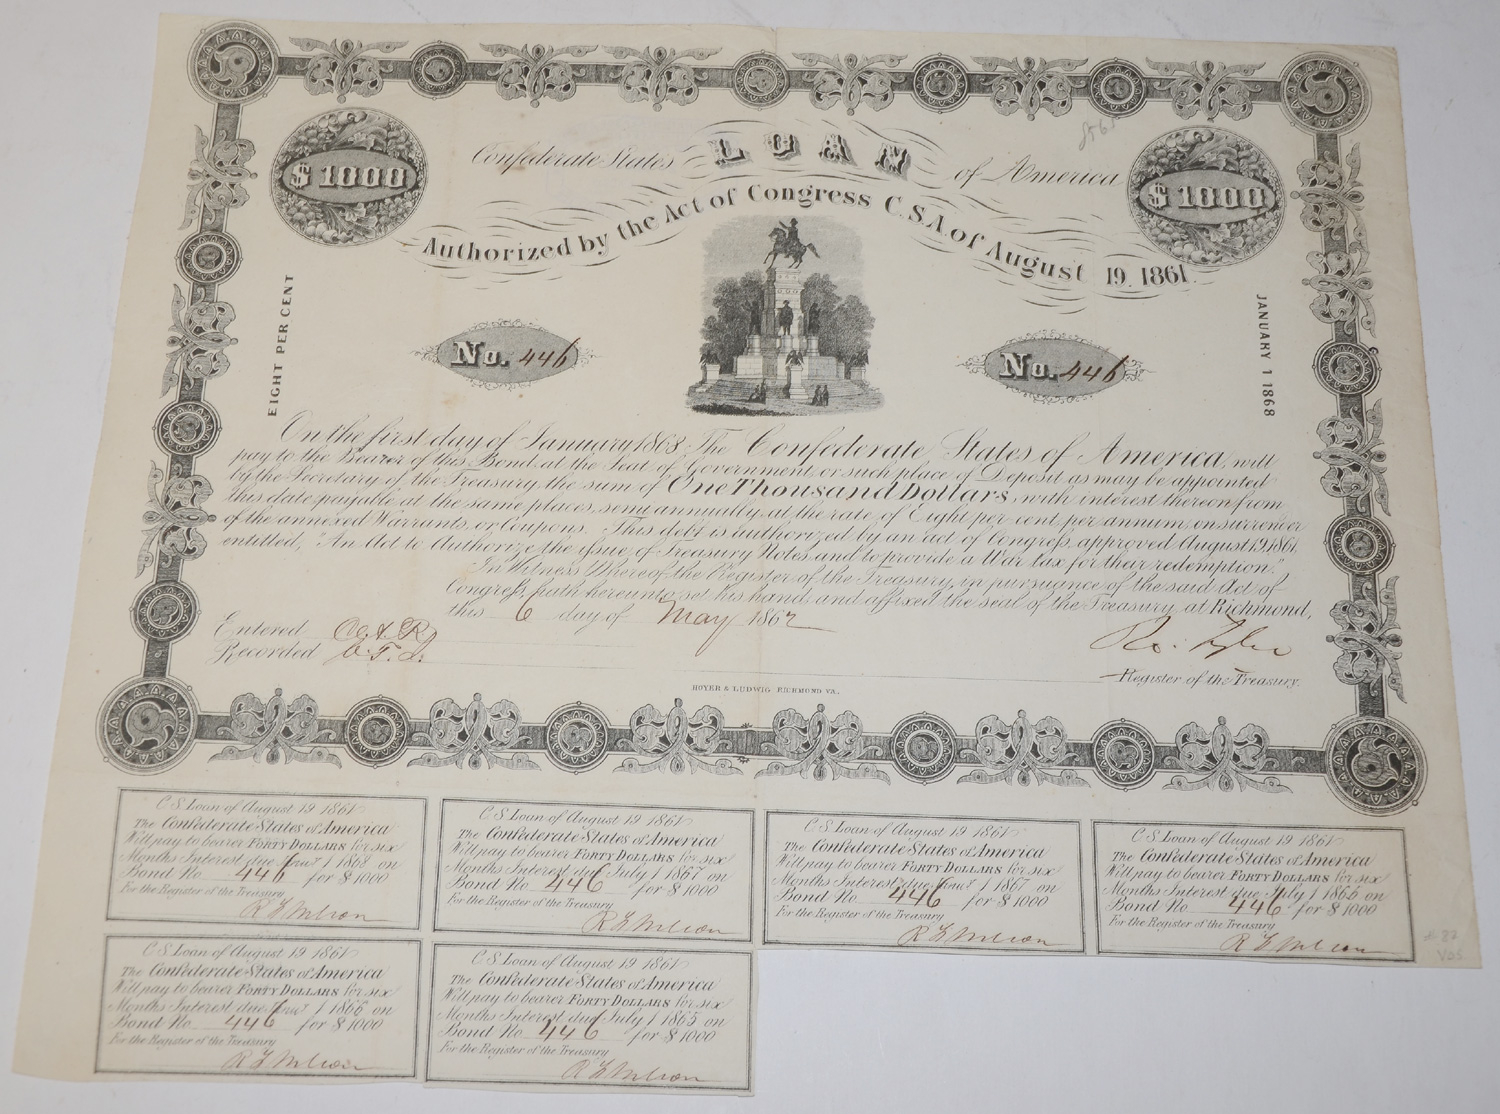 Confederate States LOAN of America
8561
$1000
$1000
Authorized by the Act of Congress C.S.A of August 19. 1861.
EIGHT PER CENT
JANUARY 1 1868
No. 446
No. 446
On the first day of January 1868 The Confederate States of America, will
pay to the Bearer of this Bond, at the Seat of Government, or such place of Deposit as may be appointed
by the Secretary of the Treasury, the sum of One Thousand Dollars, with interest thereon from
this date payable at the same places, semi annually, at the rate of Eight per cent per annum, on surrender
of the annexed Warrants, or Coupons. This debt is authorized by an act of Congress, approved August 19, 1861,
entitled, "An Act to Authorize the issue of Treasury Notes, and to provide a War tax for their redemption."
In Witness Whereof, the Register of the Treasury, in pursuance of the said Act of
Congress, hath hereunto set his hand, and affixed the seal of the Treasury, at Richmond,
this 6 day of May 1862
Entered
Recorded
Ro: Tyler
Register of the Treasury.
HOYER & LUDWIG, RICHMOND VA.
C.S. Loan of August 19 1861
The Confederate States of America
Will pay to bearer FORTY DOLLARS for six
Months Interest due Janu.y 1 1868 on
Bond No. 446 for $1000
For the Register of the Treasury
C.S. Loan of August 19 1861
The Confederate States of America
Will pay to bearer FORTY DOLLARS for six
Months Interest due July 1 1867 on
Bond No 446 for $1000
For the Register of the Treasury
C.S. Loan of August 19 1861
The Confederate States of America
Will pay to bearer FORTY DOLLARS for six
Months Interest due Janu.y 1 1867 on
Bond No. 446 for $1000
For the Register of the Treasury
C.S. Loan of August 19 1861
The Confederate States of America
Will pay to bearer FORTY DOLLARS for six
Months Interest due July 1 1866 on
Bond No. 446 for $1000
For the Register of the Treasury
C.S. Loan of August 19 1861
The Confederate States of America
Will pay to bearer FORTY DOLLARS for six
Months Interest due Janu.y 1 1866 on
Bond No. 446 for $1000
For the Register of the Treasury
C.S. Loan of August 19 1861
The Confederate States of America
Will pay to bearer FORTY DOLLARS for six
Months Interest due July 1 1865 on
Bond No. 446 for $1000
For the Register of the Treasury